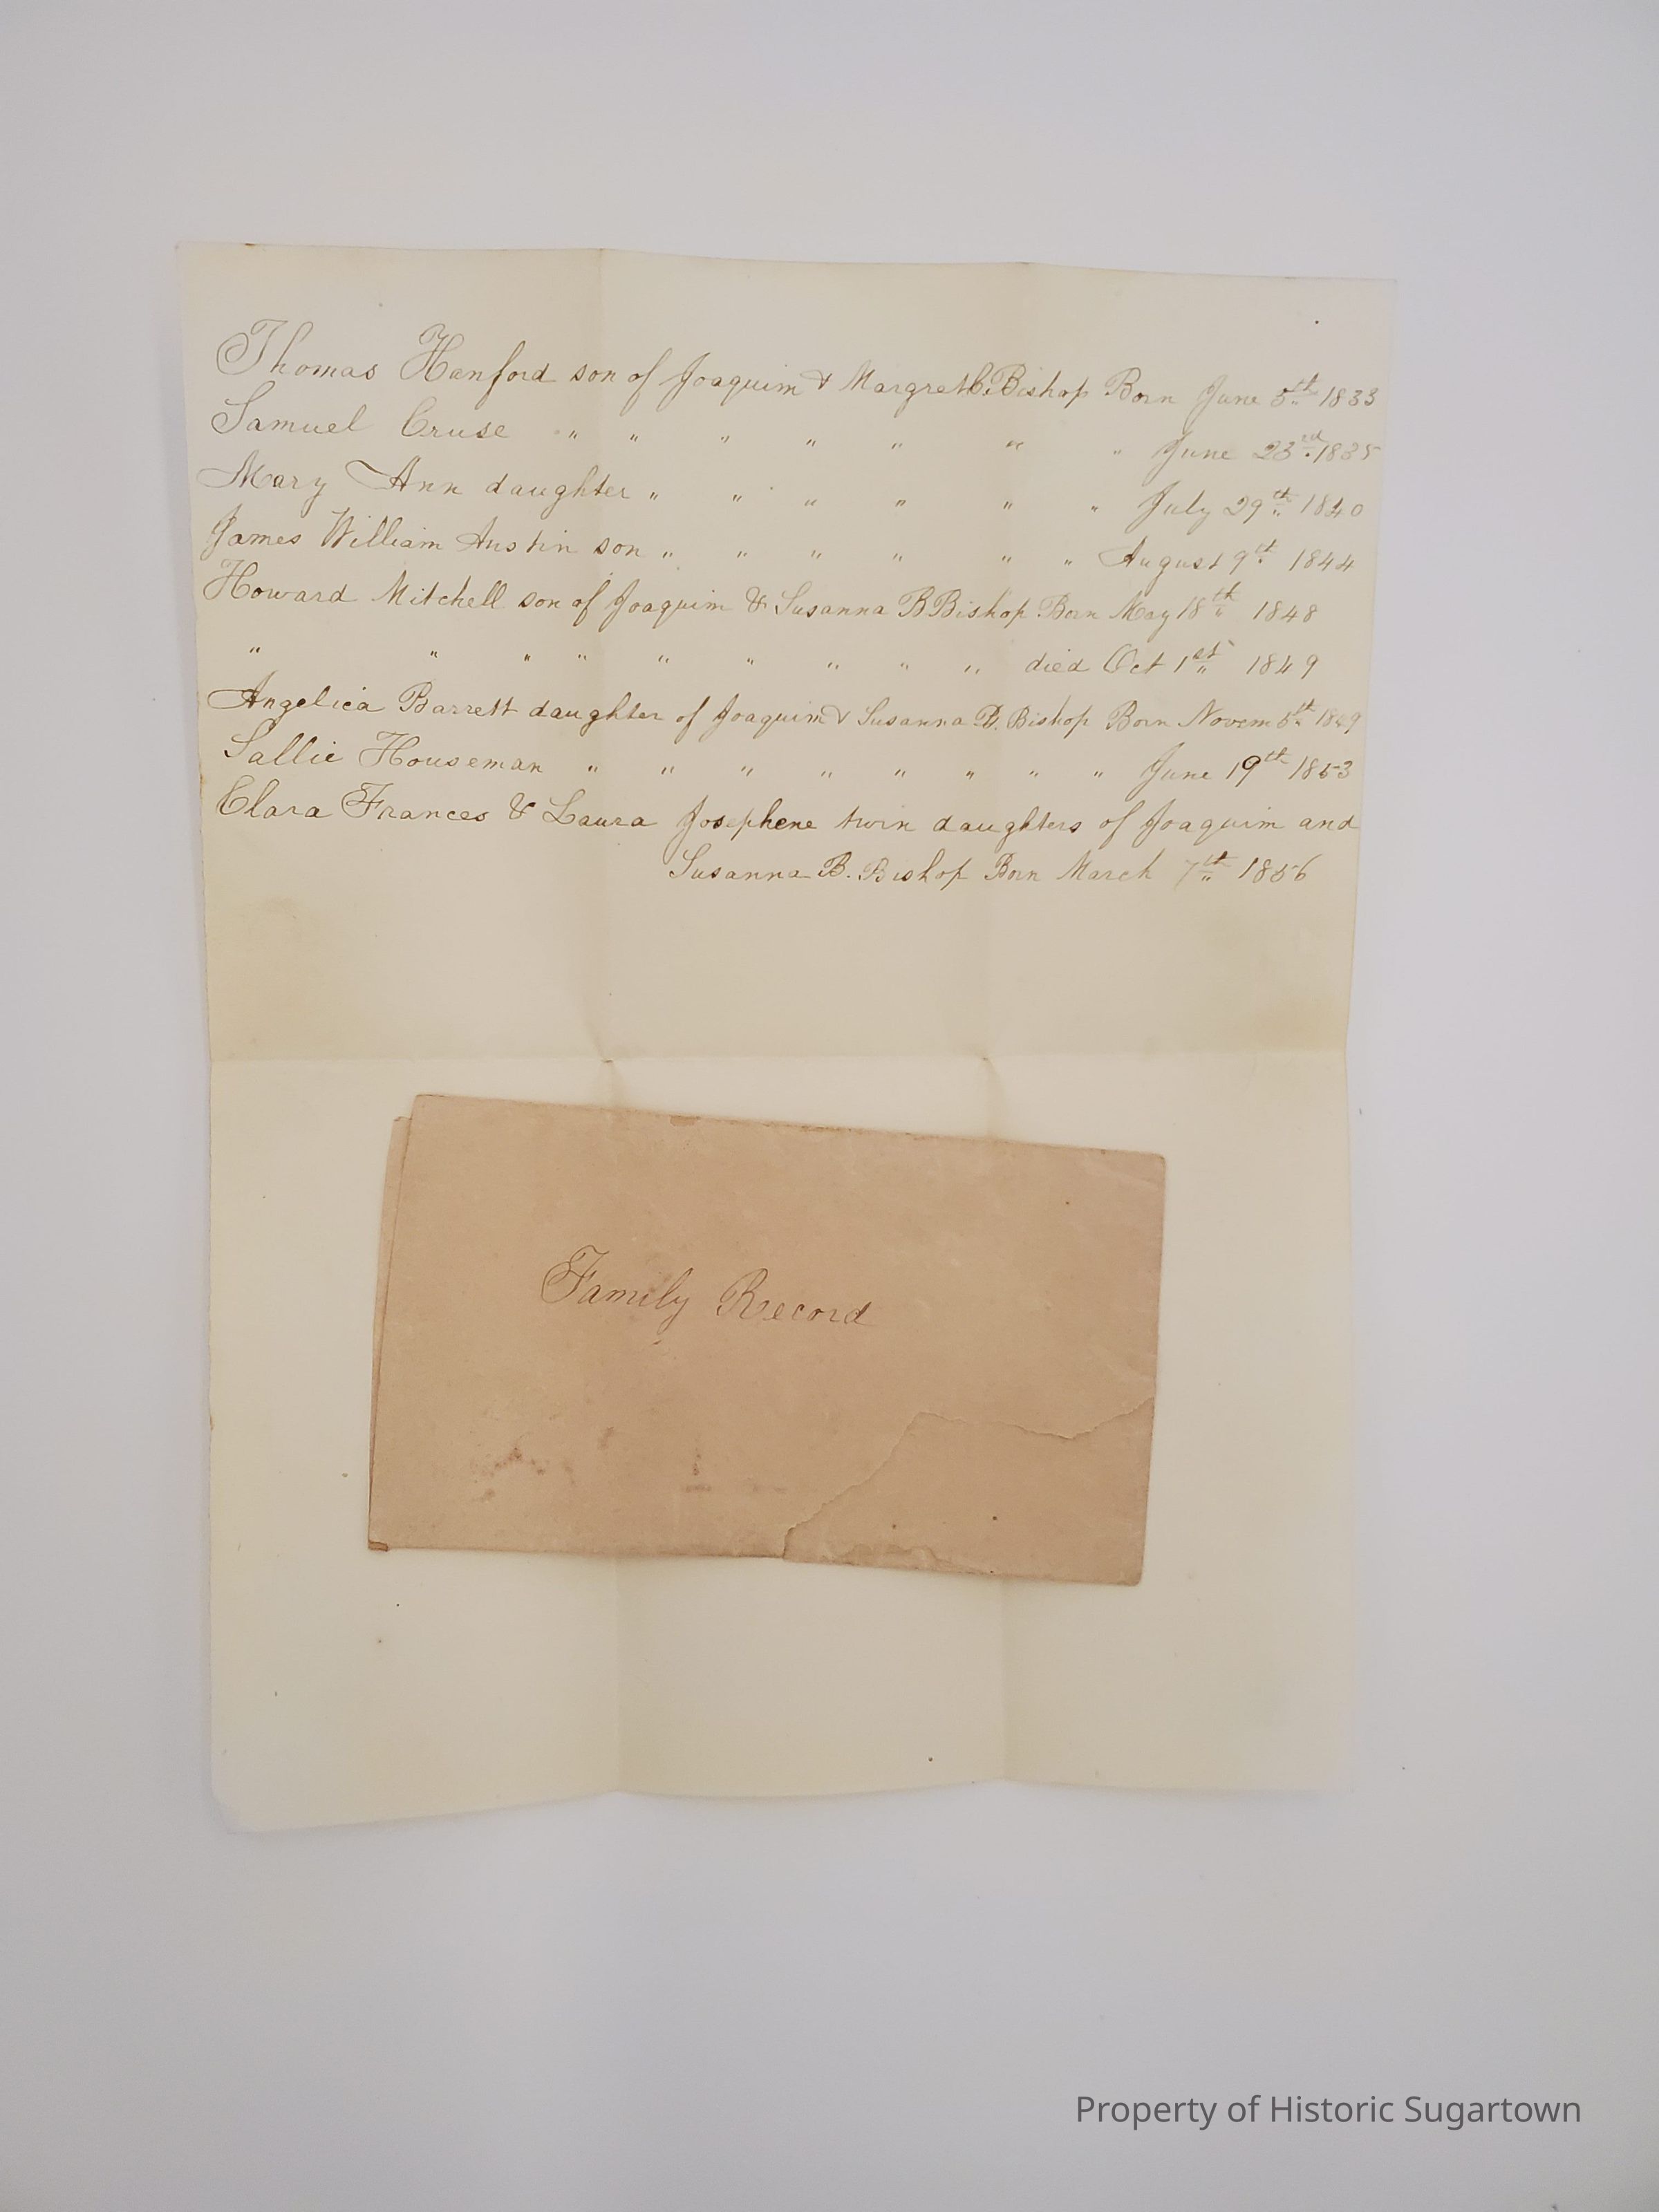 Thomas Hanford son of Joaquim & Margret C. Bishop Born June 5th 1833
Samuel Cruse " " " " " " " June 23rd 1835
Mary Ann daughter " " " " " " July 29th 1840
James William Austin son " " " " " " August 9th 1844
Howard Mitchell son of Joaquim & Susanna B Bishop Born May 18th 1848
" " " " " " " " " died Oct 1st 1849
Angelica Barrett daughter of Joaquim & Susanna B. Bishop Born Novem 5th 1849
Sallie Houseman " " " " " " " " June 19th 1853
Clara Frances & Laura Josephene twin daughters of Joaquim and
Susanna B. Bishop Born March 7th 1856
Family Record
Property of Historic Sugartown